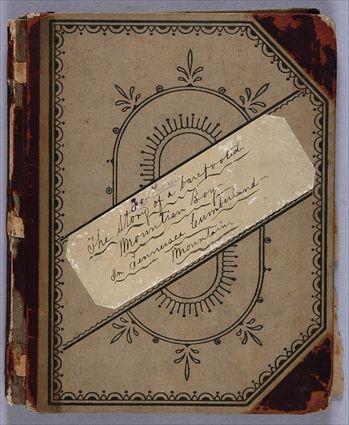 The Story of a barefooted
Mountian Boy
In Tennessee Cumberland
Mountain